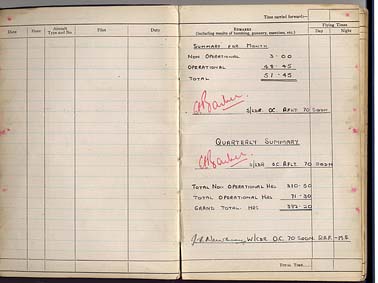 Time carried forward:—
Date Hour Aircraft Type and No Pilot Duty REMARKS Flying Times
(including results of bombing, gunnery, exercises, etc.) Day Night
SUMMARY FOR MONTH
NON OPERATIONAL 3-00
OPERATIONAL 48-45
TOTAL 51-45
S/LDR OC. AFLT 70 SQDN
QUARTERLY SUMMARY
S/LDR OC. AFLT 70 SQDN
TOTAL NON OPERATIONAL HRS
TOTAL OPERATIONAL HRS 71-30
GRAND TOTAL HRS
W/CDR O.C. 70 SQDN R.A.F.-M.E.
TOTAL TIME